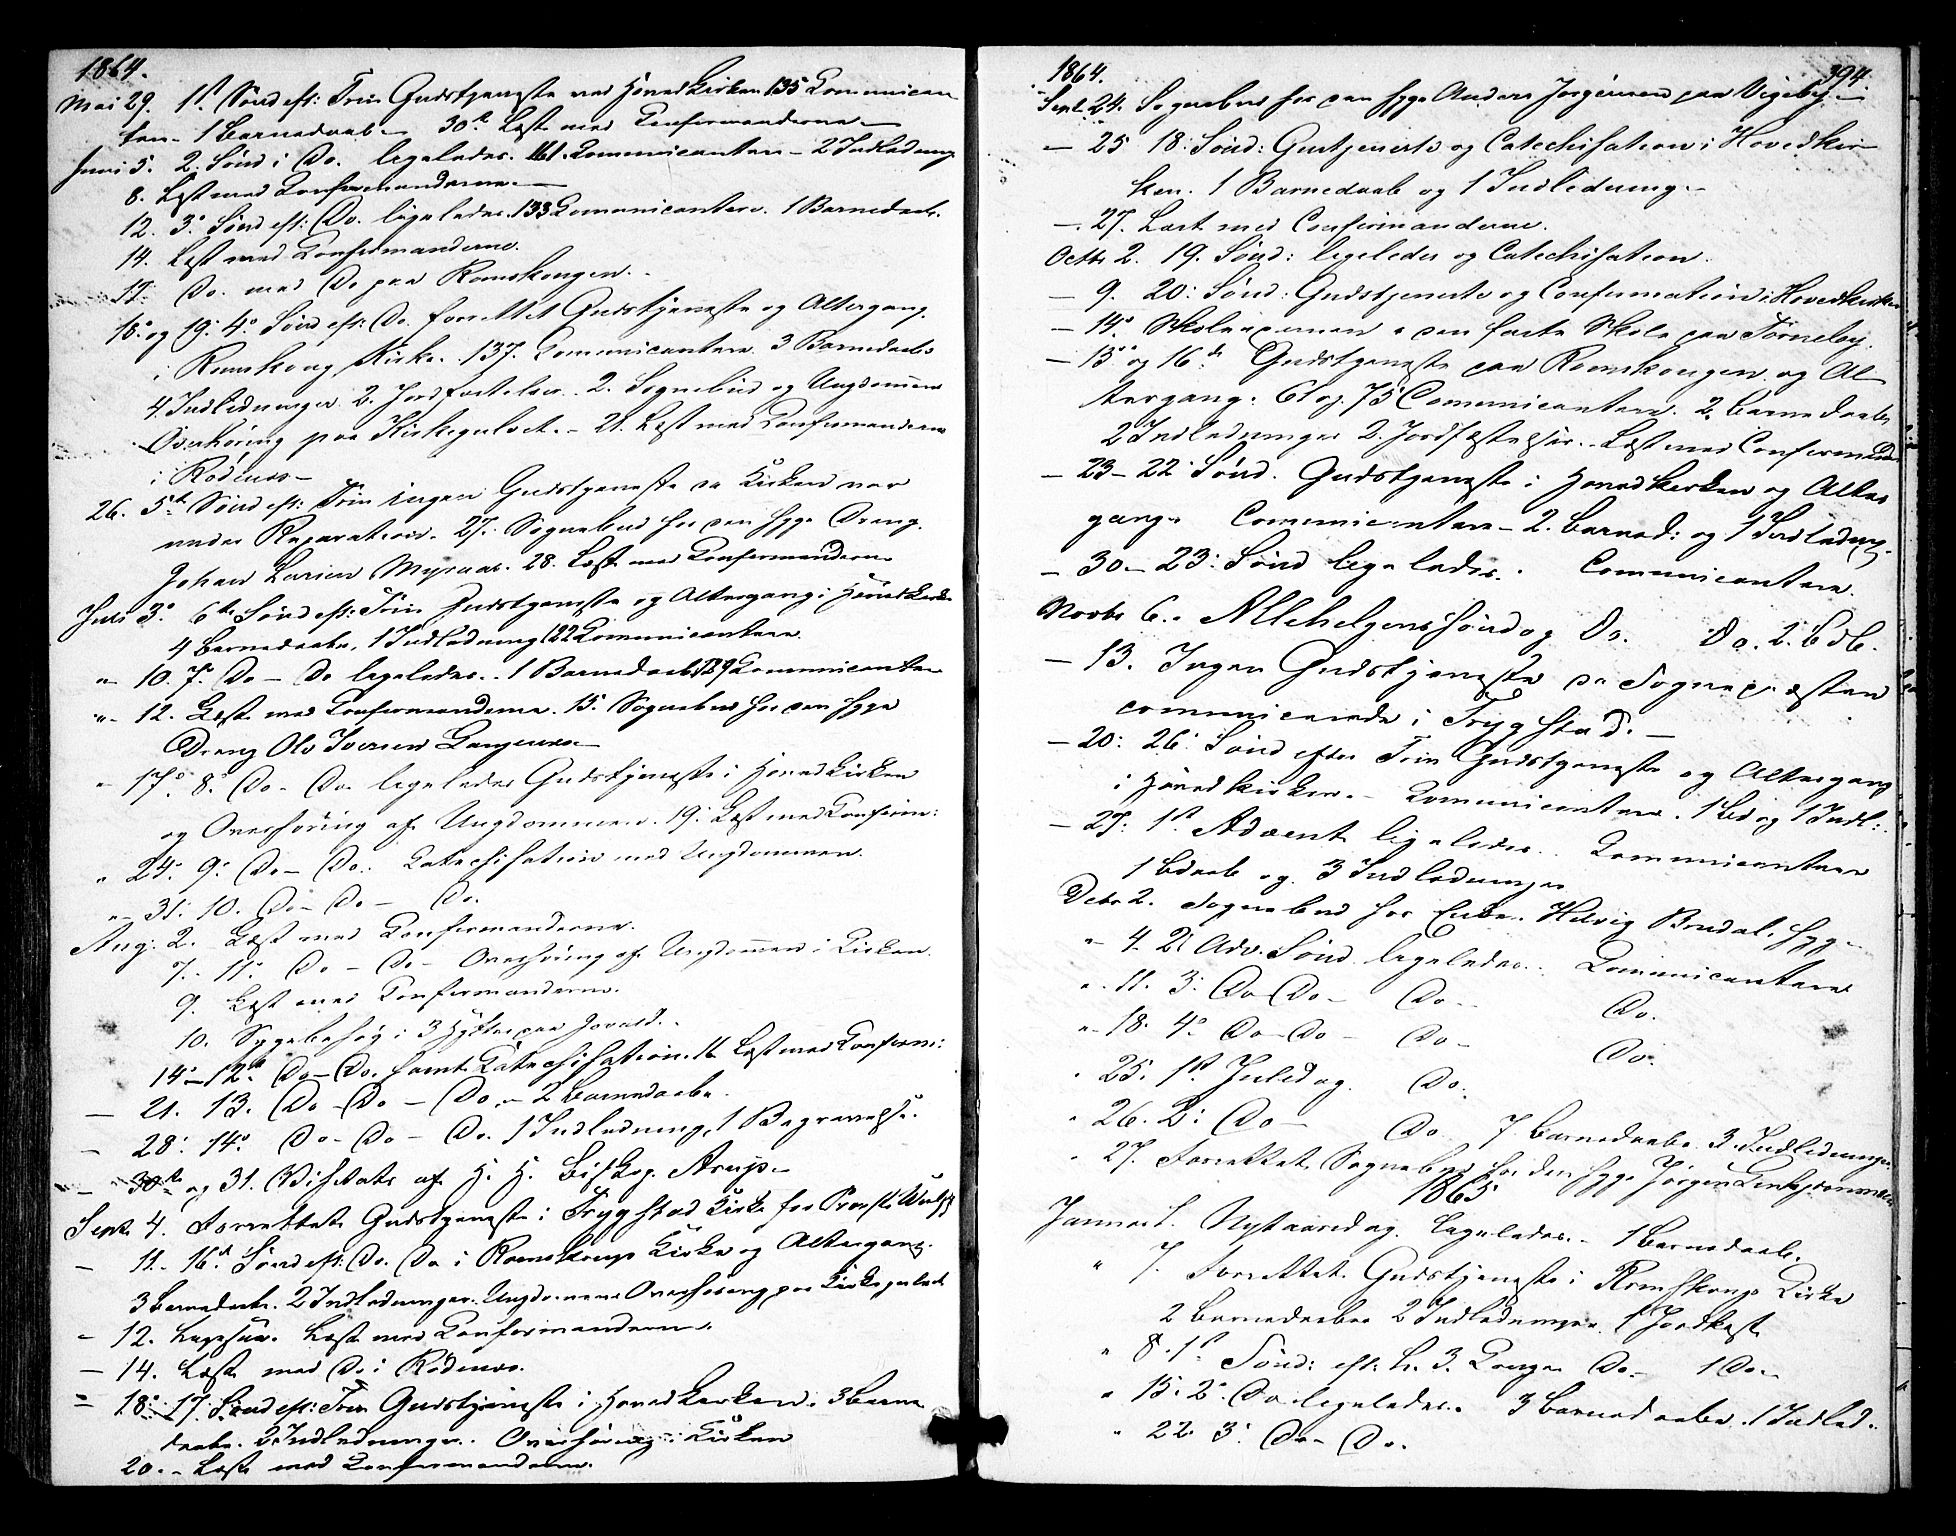 1864.
Mai 29. 1ste Sönd eft: Trin Gudstjeneste ved Hovedkirken 135 Communican
ter. 1 Barnedaab – 30te Læst med Confirmanderne –
Juni 5. 2. Sönd i Do. ligeledes. 161 Communicantere – 2 Indledning
8. Læst med Confirmanderne. –
12. 3. Sönd eft: Do. ligeledes. 133 Communicantere. 1 Barnedaab.
14. Læst med Confirmanderne.
17. Do. med Do paa Romskougen. –
18. og 19. 4. Sönd eft: Do. forrettet Gudstjeneste og Altergang
i Romskoug Kirke. 137. Communicantere 3 Barnedaabe
4 Indledninger. 2. Jordfæstelser. 2. Sognebud og Ungdommens
Overhöring paa Kirkegulvet. – 21. Læst med Confirmanderne
i Rödenæs –
26. 5te Sönd eft: Trin ingen Gudstjeneste da Kirken var
under Reparation. 27. Sognebud hos den syge Dreng
Johan Larsen Myraas. 28. Læst med Confirmanderne
Juli 3. 6te Sönd eft: Trin Gudstjeneste og Altergang i Hovedkirke
4 Barnedaabe, 1 Indledning 122 Communicantere
" 10. 7. Do – Do ligeledes. 1 Barnedaab 129 Communicanter
" 12. Læst med Confirmanderne. 15. Sognebud hos den syge
Dreng Ole Iversen
" 17. 8. Do – Do ligeledes Gudstjeneste i Hovedkirken
og Overhöring af Ungdommen. 19. Læst med Confirm:
" 24. 9. Do – Do. Catechisation med Ungdommen.
" 31. 10. Do – Do – Do.
Aug. 2. Læst med Confirmanderne.
7. 11. Do – Do – Overhöring af Ungdommen i Kirken.
9. Læst med Confirmanderne.
10. Sygebesög i 3 paa
14. – 12te Do – Do. samt Catechisation. 16 Læst med Confirm:
– 21. 13. Do – Do – Do. – 2 Barnedaabe.
– 28. 14. Do – Do – Do. 1 Indledning, 1 Begravelse.
– 30te og 31. Visitats af H. H. Biskop Arup. –
Septr 4. Forrettet Gudstjeneste i Trygstad Kirke for Provst
– 11. 16de Sönd eft: Do. Do i Romskougs Kirke og Altergang.
3 Barnedaabe. 2 Indledninger. Ungdommens Overhöring paa Kirkegulvet
– 12. Læst med Confirmanderne.
– 14. Læst med Do i Rödenæs.
– 18. 17. Sönd eft: Trin Gudstjeneste i Hovedkirken. 3 Barne
daabe. 2 Indledninger. Overhöring i Kirken
20. – Læst med Confirmanderne.
1864. 394.
Sept. 24. Sognebud hos den syge Anders Jörgensen paa Vigeby. –
– 25 18. Sönd: Gustjeneste og Catechisation i Hovedkir
ken. 1 Barnedaab og 1 Indledning. –
– 27. Læst med Confirmanderne.
Octbr 2. 19. Sönd: ligeledes og Catechisation.
– 9. 20. Sönd: Gudstjeneste og Confirmation i Hovedkirken
– 14. Skoleexamen i den faste Skole paa Törneby.
– 15. og 16de Gudstjeneste paa Romskougen og Al
tergang. 61 og 75 Communicantere. 2 Barnedaab
2 Indledninger 2. Jordfæstelser. Læst med Confirmand
– 23 – 22 Sönd. Gudstjeneste i Hovedkirken og Alter
gang. Communicantere – 2. Barned: og 1 Indledning.
– 30 – 23. Sönd ligeledes. Communicantere.
Novbr 6. Allehelgenssöndag Do. Do. 2. Bdb.
– 13. Ingen Gudstjeneste da Sognepræsten
communicerede i Trygstad. –
– 20. 26. Sönd efter Trin Gudstjeneste og Altergang
i Hovedkirken. – Communicantere. 1 Bd og 1 Indl:
– 27. 1ste Advent ligeledes. Communicantere
1 Bdaab og 3 Indledninger
Debr 2. Sognebud hos Enke. Helvig Brudal, syg –
" 4. 2. Adv. Sönd ligeledes. Communicantere
" 11. 3. Do – Do – Do – Do.
" 18. 4. Do – Do – Do – Do.
" 25. 1ste Juledag. Do.
" 26. 2. Do – Do 7 Barnedaabe 3 Indledninger
" 27. Forrettet Sognebud hos den syge Jörgen
1865.
Januar 1. Nytaarsdag. ligeledes. – 1 Barnedaab.
" 7. Forrettet Gudstjeneste i Romskougs Kirke
2 Barnedaabe 2 Indledninger 1 Jordkast
" 8. 1ste Sönd: eft: h. 3. Konger Do. – 1 Do. –
" 15. 2. Do ligeledes. 3 Barnedaabe. 1 Indled.
" 22. 3. Do – Do.